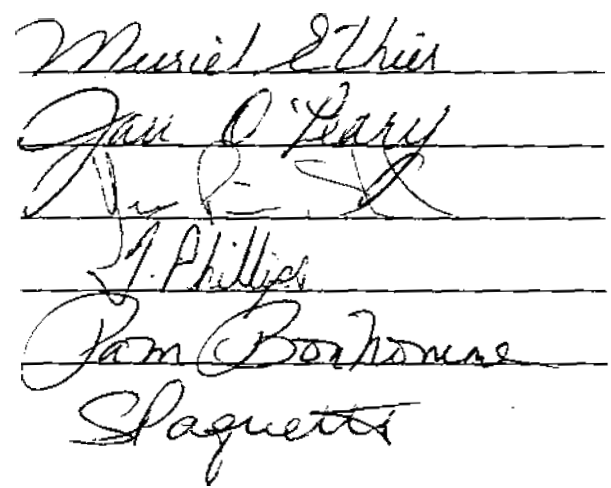 Muriel Ethier
Jan O'Leary
T. Phillips
Pam Bonhomme
S Paquette